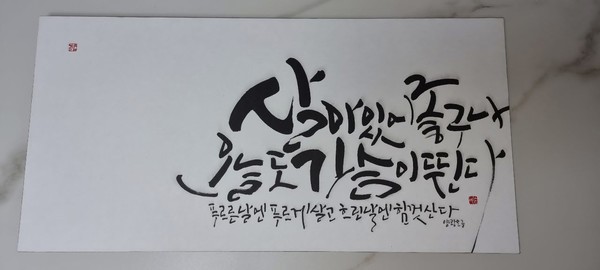 살아있어 좋구나
오늘도 가슴이 뛴다
푸르른 날엔 푸르게 살고 흐린 날엔 힘껏 산다